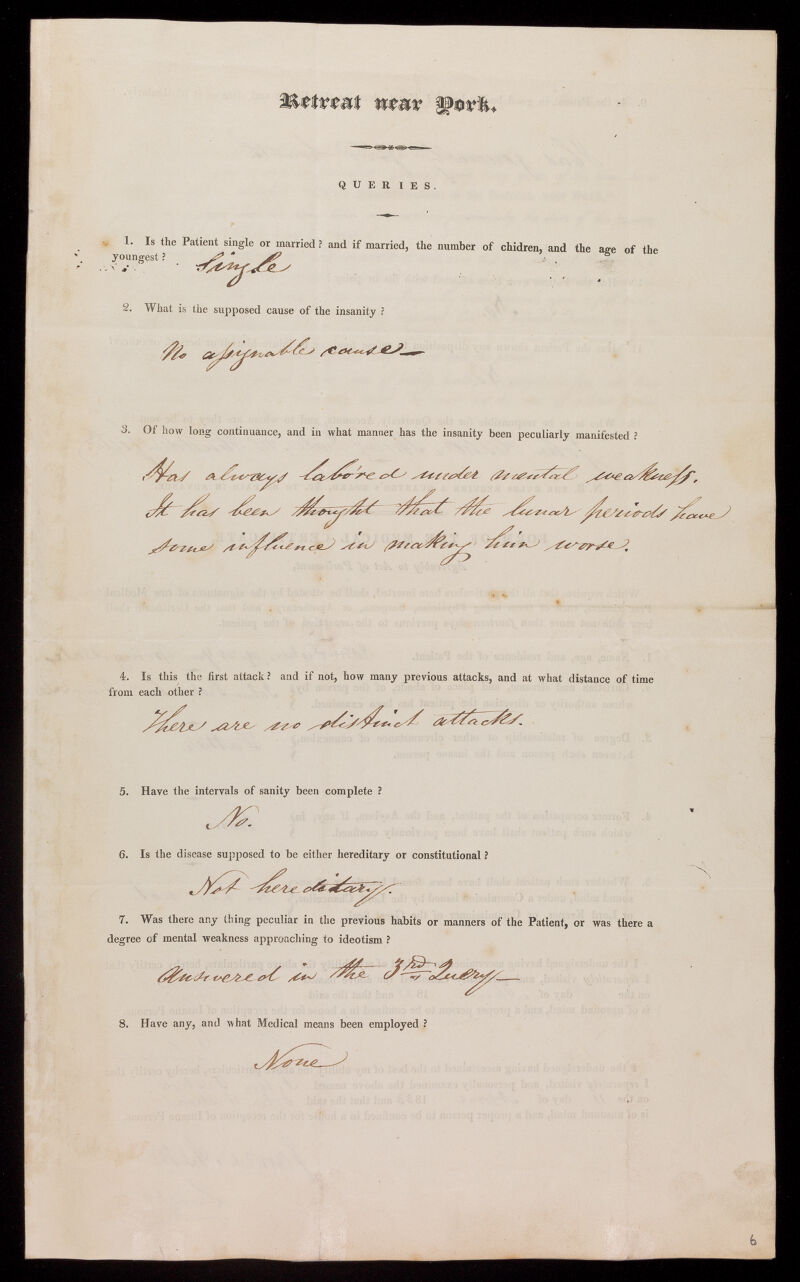 Retreat near York.
QUERIES.
1. Is the Patient single or married? and if married, the number of chidren, and the age of the
youngest?
Single
2. What is the supposed cause of the insanity?
No aſsignable cause—
3. Of how long continuance, and in what manner has the insanity been peculiarly manifested?
Has always labored under mental weakneſs.
It has been thought that the lunar periods have
some influence in making him worse.
4. Is this the first attack? and if not, how many previous attacks, and at what distance of time
from each other?
There are no distinct attacks.
5. Have the intervals of sanity been complete?
No.
6. Is the disease supposed to be either hereditary or constitutional?
Not hereditary.
7. Was there any thing peculiar in the previous habits or manners of the Patient, or was there a
degree of mental weakness approaching to ideotism?
Answered in the 3rd Query—
8. Have any, and what Medical means been employed?
None
6